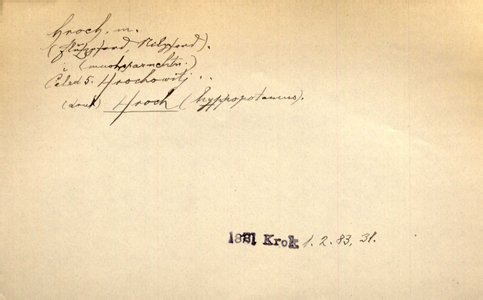 hroch, m.
(Flußpferd, Nilpferd).
i (mnohoparnehtn.)
Čeled 5. Hrochowitj ..
(druh) Hroch (hyppopotamus).
1821 Krok 1. 2. 83, 31.